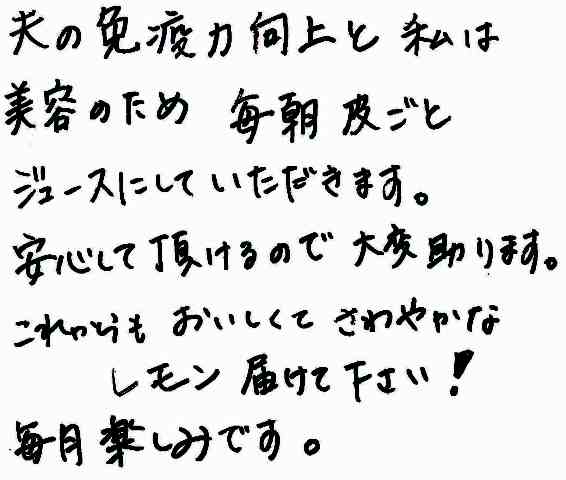 夫の免疫力向上と 私は
美容のため 毎朝 皮ごと
ジュースにしていただきます。
安心して頂けるので 大変助ります。
これからも おいしくて さわやかな
レモン 届けて下さい!
毎月楽しみです。